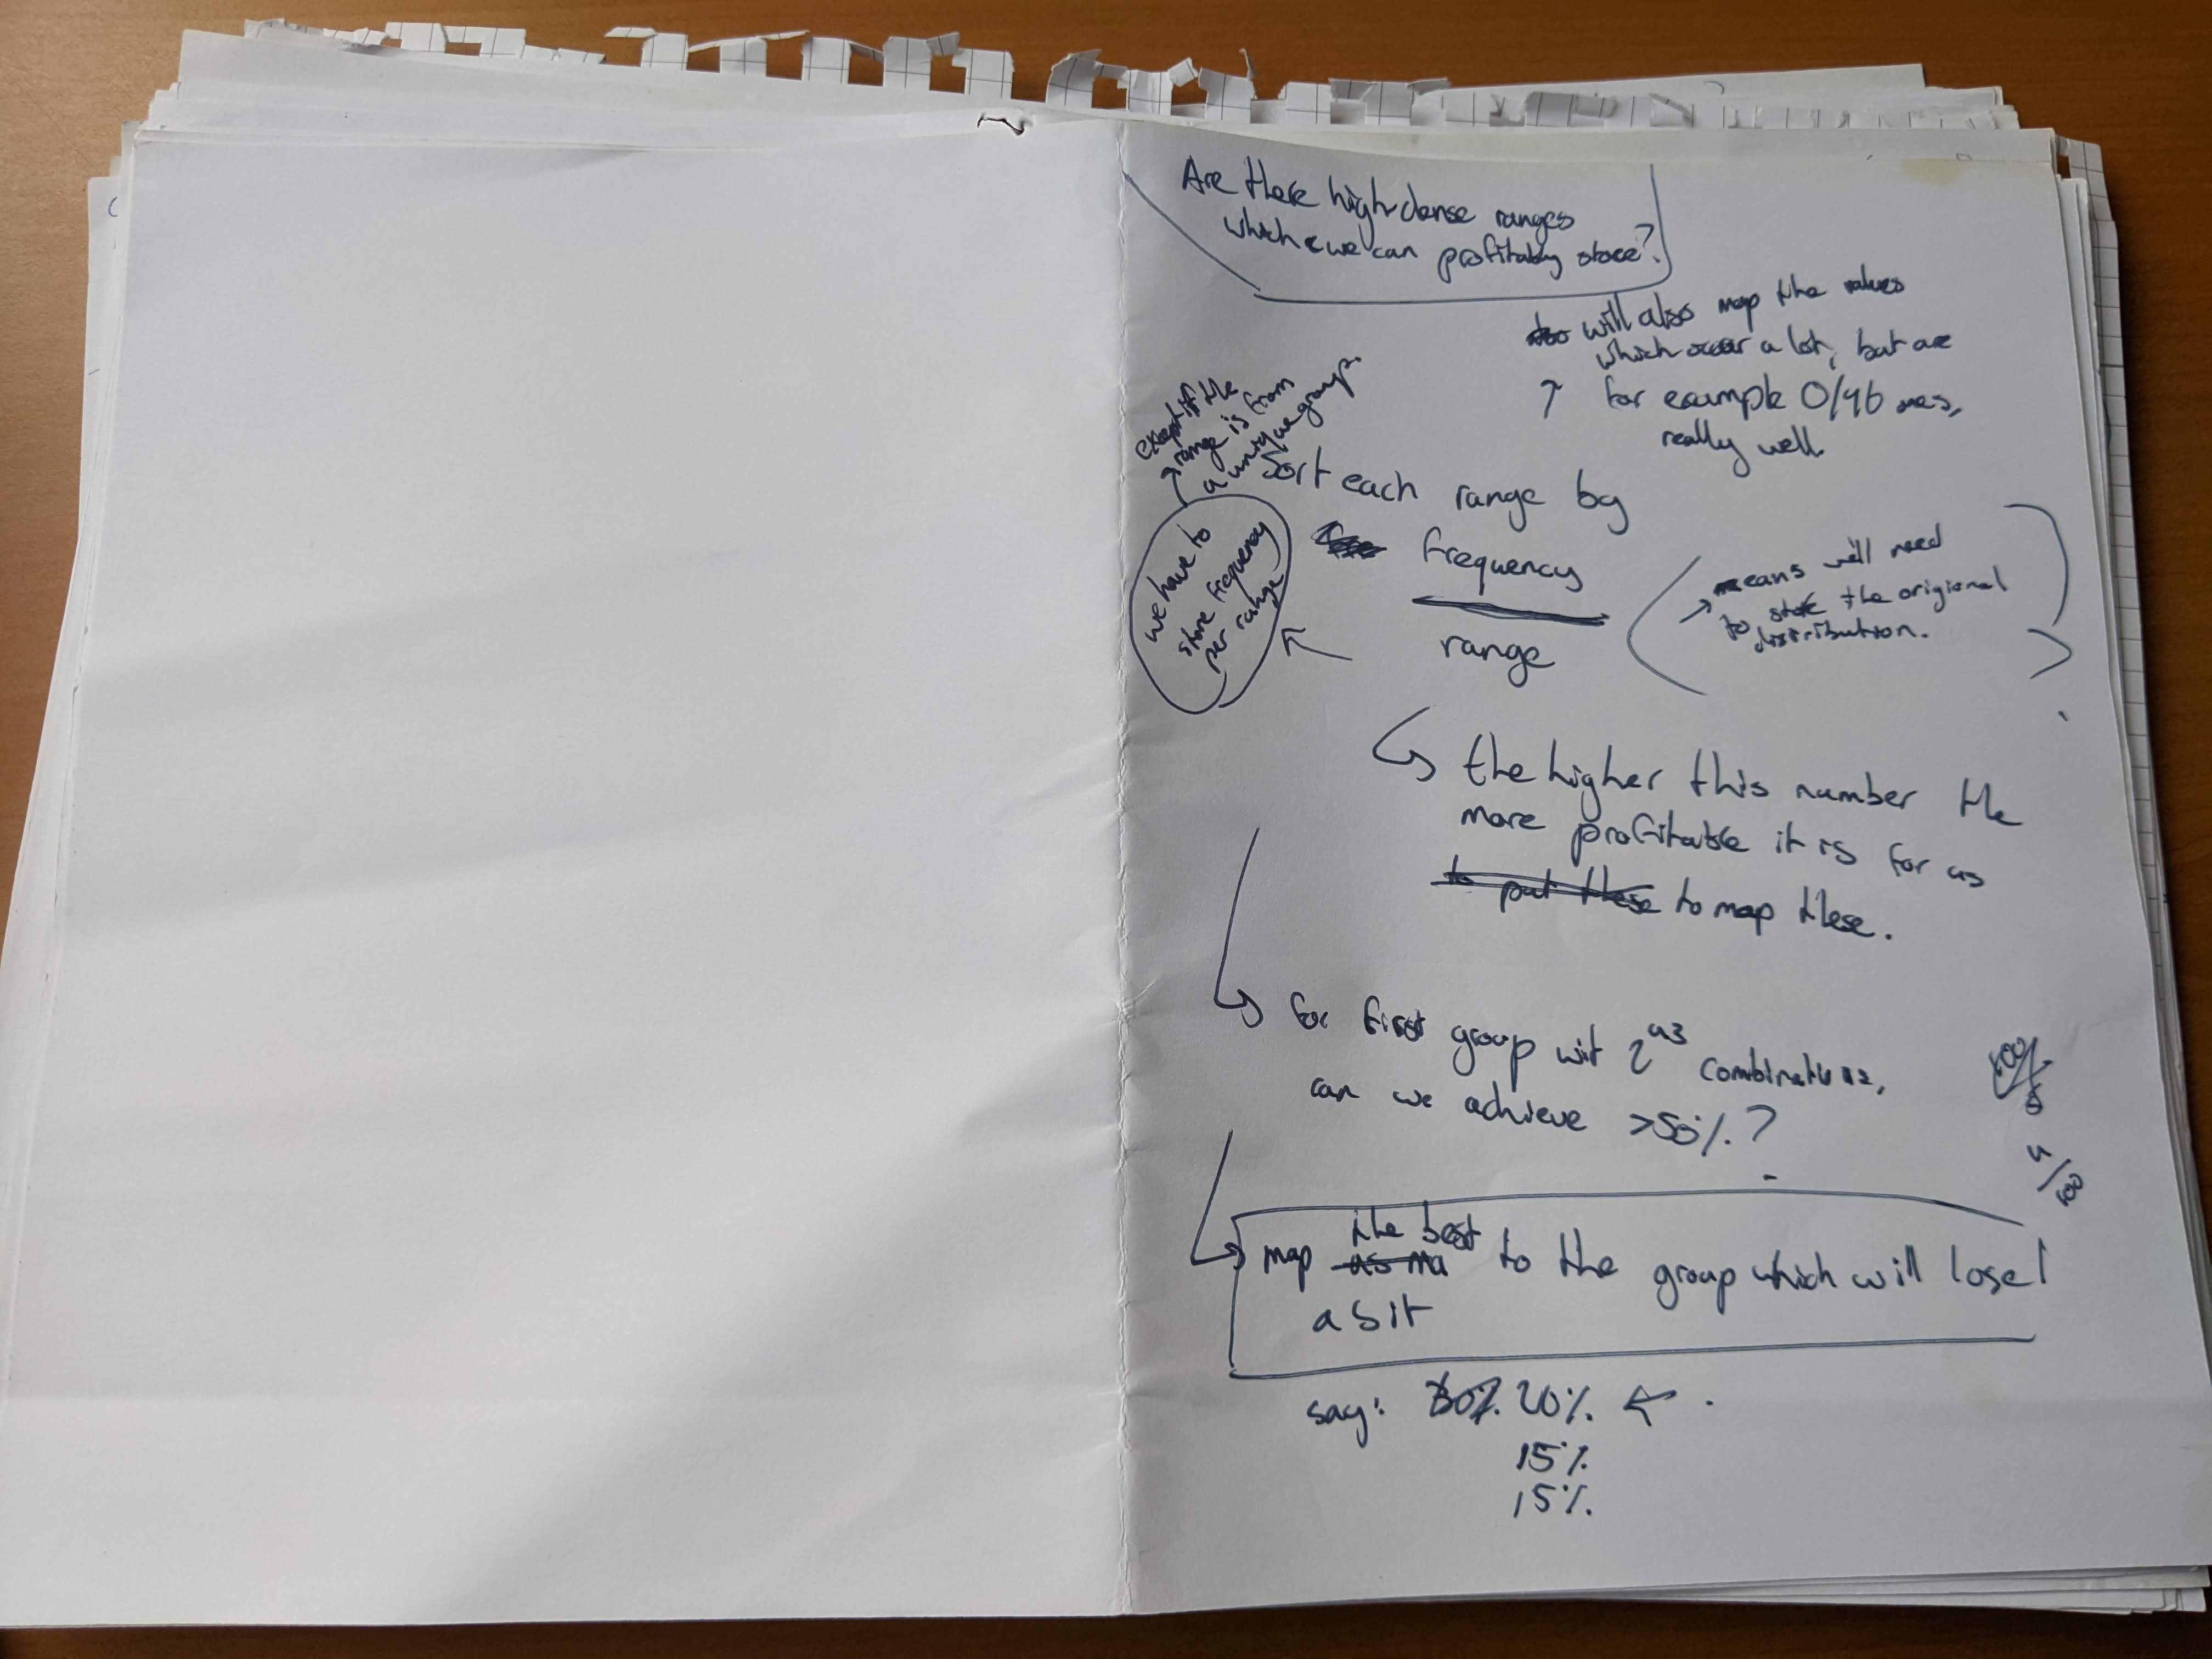 Are there high dense ranges
which we can profitably store?
will also map the values
which occur a lot, but are
for example 0/46 ones,
really well.
except if the
range is from
a unique group.
Sort each range by
frequency
range
we have to
store frequency
per range
means we'll need
to store the origional
distribution.
the higher this number the
more profitable it is for us
to put these to map these.
for first group wit 2^43 combinations,
can we achieve >50%?
4/100
the best
map as ma to the group which will lose 1
a bit
say: 20%
15%
15%